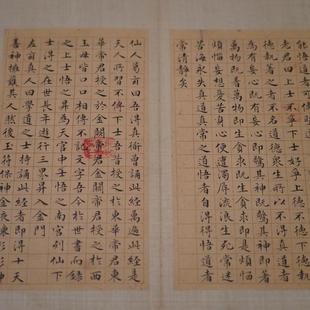 能悟之者可傳聖道
老君曰上士不爭下士好爭上德不德下德執
德執著之者不明道德眾生所以不得真道者
為有妄心既有妄心即驚其神既驚其神即著
萬物既著萬物即生貪求既生貪求即是煩
惱妄想憂苦身心便遭濁辱流浪生死常
苦海永失真道真常之道悟者自得得悟道者
常清靜矣
仙人葛翁曰吾得真道曾誦此經萬遍此經是
天人所習不傳下士吾昔受之於東華帝君東
華帝君受之於金闕帝君金闕帝君受之於西
王母皆口口相傳不記文字吾今於世書而錄
之上士悟之昇為天官中士悟之南宮列仙下
士得之在世長年遊行三界昇入金門
左玄真人曰學道之士持誦此經者即得十天
善神擁護其人然後玉符保神金液煉形形神